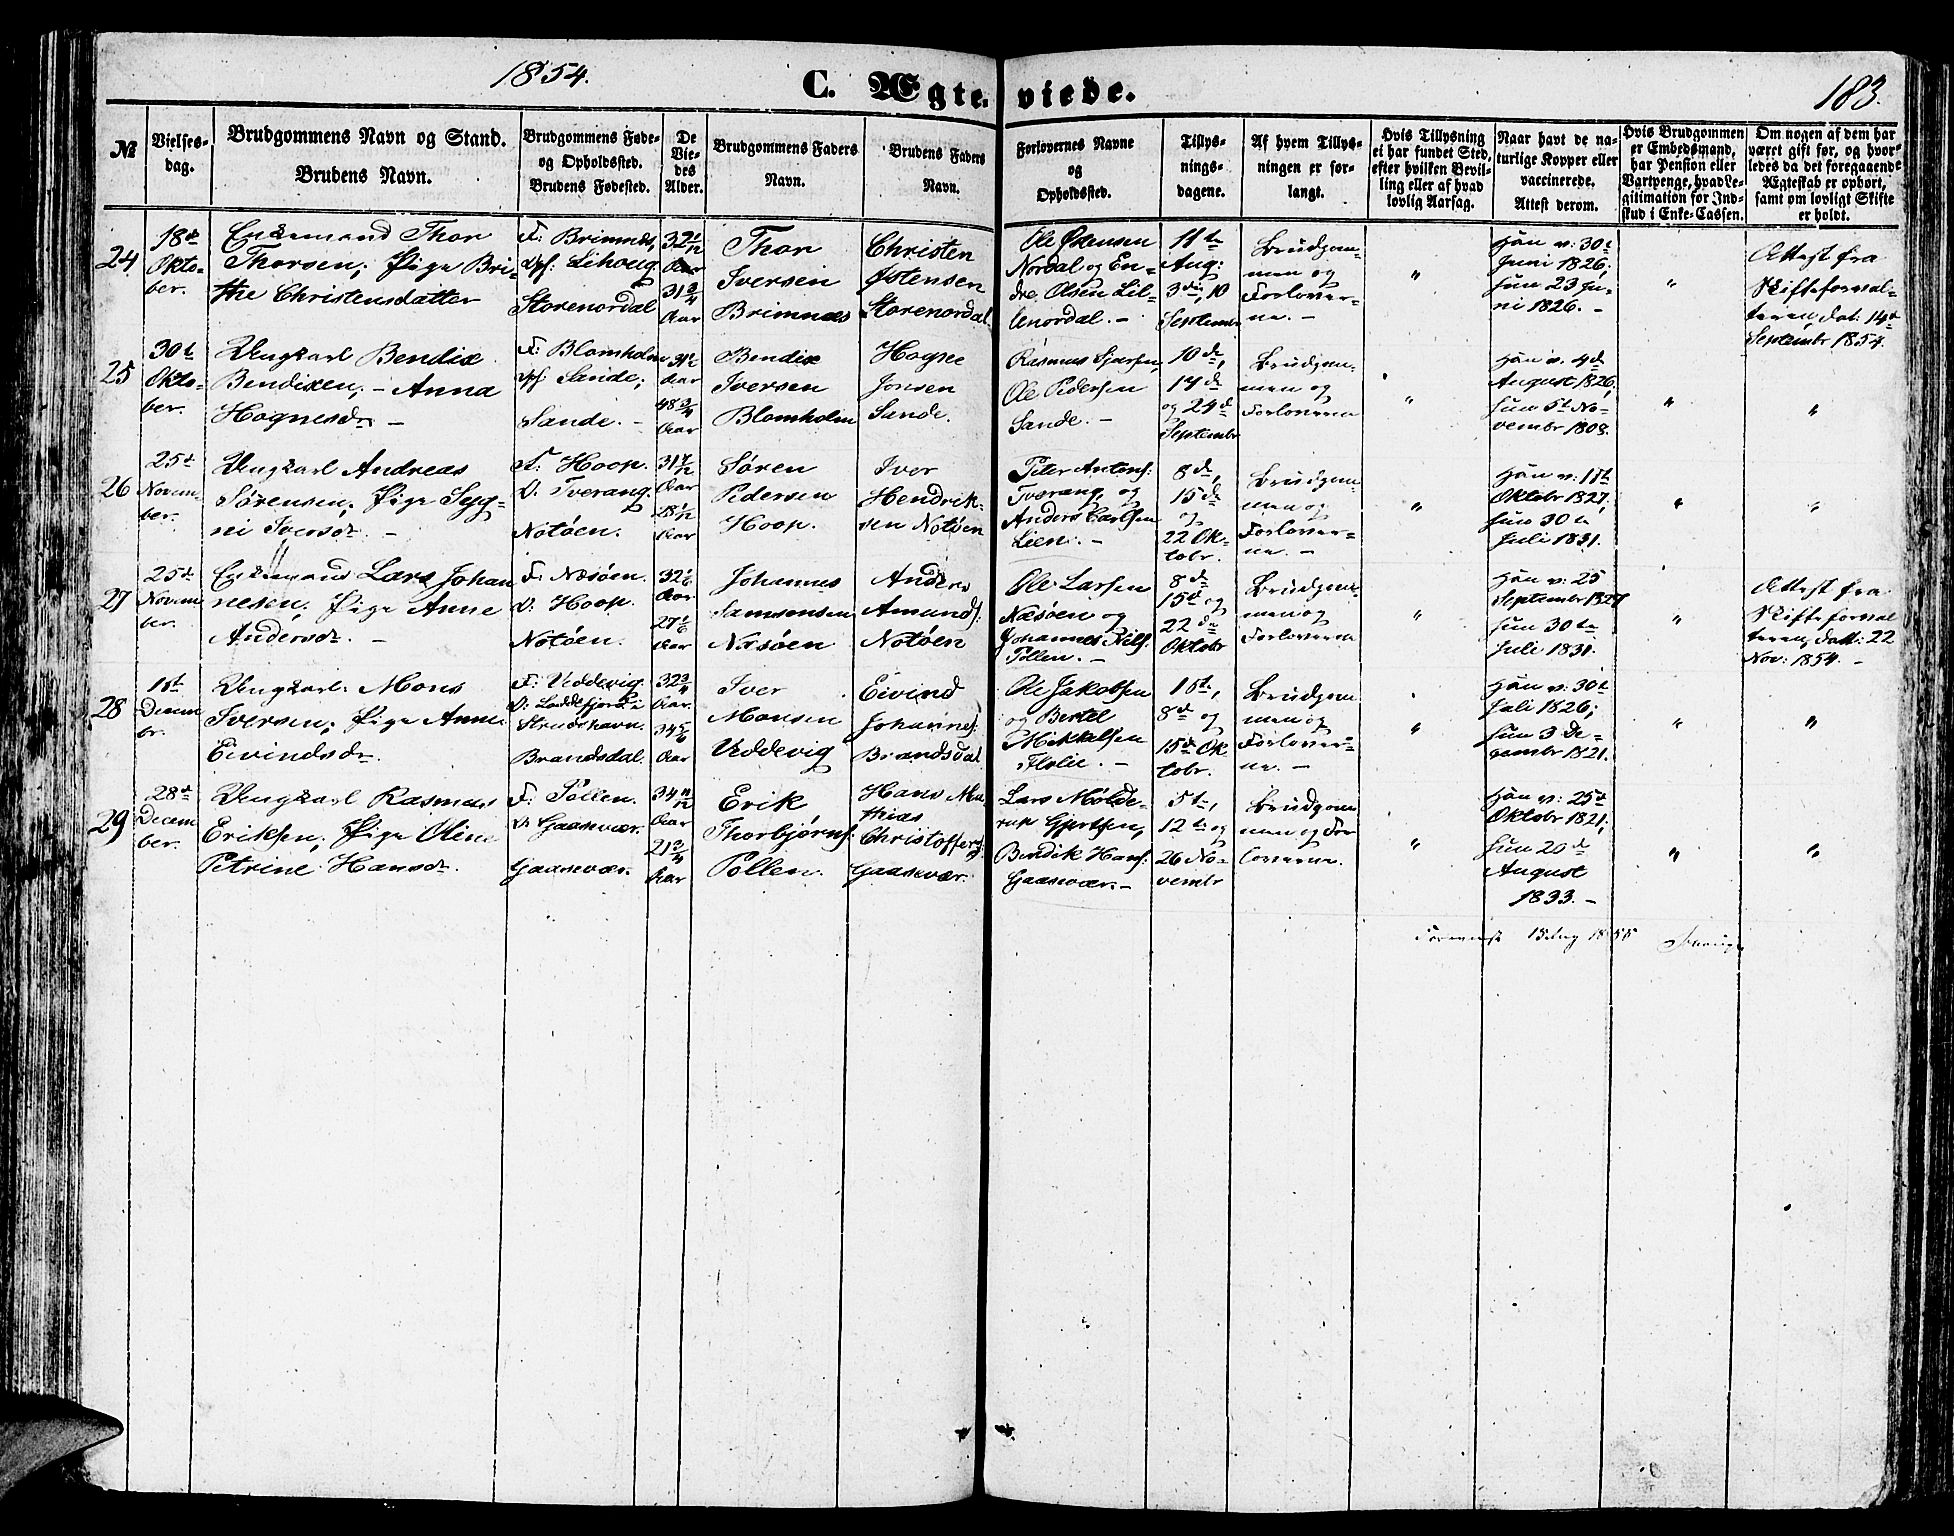 1854.
C. Ægte-viede.
183.
№
Vielses-
dag.
Brudgommens Navn og Stand.
Brudens Navn.
Brudgommens Føde-
og Opholdssted.
Brudens Fødested.
De
Vie-
des
Alder.
Brudgommens Faders
Navn.
Brudens Faders
Navn.
Forlovernes Navne
og
Opholdssted.
Tillys-
nings-
dagene.
Af hvem Tillys-
ningen er for-
langt.
Hvis Tillysning
ei har fundet Sted,
efter hvilken Bevil-
ling eller af hvad
lovlig Aarsag.
Naar havt de na-
turlige Kopper eller
vaccinerede.
Attest derom.
Hvis Brudgommen
er Embedsmand,
har Pension eller
Vartpenge, hvad Le-
gitimation for Ind-
skud i Enke-Cassen.
Om nogen af dem har
været gift før, og hvor-
ledes da det foregaaende
Ægteskab er ophørt,
samt om lovligt Skifte
er holdt.
24
18de
Okto-
ber.
Enkemand Thor
Thorsen; Pige Bri-
the Christensdatter
F: Brimnes,
Opf: Lihoug
Storenordal
32 1/12
Aar
31 3/4
Aar
Thor
Iversen
Brimnæs
Christen
Østensen
Storenordal.
Ole Østensen
Nordal og En-
dre Olsen Lil-
lenordal. –
11te
Aug:
3die, 10
Septembr
Brudgom-
men og
Forlover-
ne. –
"
Han v: 30te
Juni 1826;
hun 23 Ju-
ni 1826. –
"
Attest fra
Skifteforval-
teren, dat: 14de
Septembr 1854.
25
30te
Okto-
ber.
Ungkarl Bendix
Bendixen; – Anna
Hognesdr –
F: Blomholm
Opf: Sande;
Sande. –
31 1/2
Aar
48 3/4
Aar
Bendix
Iversen
Blomholm
Hogne
Jonsen
Sande.
Rasmus Sjursen,
Ole Pedersen
Sande. –
10de,
17de
og 24de
Septembr
Brudgom-
men og
Forloverne
"
Han v. 4de
August 1826,
hun 5te No-
vembr 1808.
"
"
26
25de
Novem-
ber.
Ungkarl Andreas
Sørensen; Pige Syg-
ni Iversdr. –
F: Hoop.
O: Tverang.
Notøen.
31 7/12
Aar
28 1/12
Aar
Søren
Pedersen
Hoop.
Iver
Hendrik-
sen Notøen
Peter Antons:
Tværang, og
Anders Carlsen
Lien. –
8de,
15de
og
22 Ok-
tobr.
Brudgom-
men og
Forlover-
ne. –
"
Han v: 11te
Oktobr 1827;
hun 30te
Juli 1831.
"
"
27
25de
Novem-
ber.
Enkemand Lars Johan-
nesen; Pige Anne
Andersdr. –
F: Næsøen.
O: Hoop.
Notøen.
32 1/6
Aar
27 1/6
Aar
Johannes
Samsonsen
Næsøen
Anders
Amunds:
Notøen
Ole Larsen
Næsøen og
Johannes Nils:
Pollen. –
8de
15de og
22de
Oktobr
Brudgom-
men og
Forloverne
"
Han v: 25
Septembr 1827
hun 30te
Juli 1831.
"
Attest fra
Skifteforval-
teren, dat: 22
Nov: 1854. –
28
1ste
Decem-
br.
Ungkarl Mons
Iversen; Pige Anne
Eivindsdr.
F: Uddevig.
Brandsdal.
32 3/4
Aar.
34 5/6
Aar
Iver
Monsen
Uddevig
Eivind
Johannes:
Brandsdal
Ole Jakobsen
og Bertel
Mikkelsen
Flolie. –
1ste,
8de og
15de Ok-
tobr.
Brudgom-
men og
Forlover-
ne. –
"
Han v: 30te
Juli 1826;
hun 3 De-
cembr 1821.
"
"
29
28de
Decem-
ber.
Ungkarl Rasmus
Eriksen; Pige Oline
Petrine Hansdr.
F: Pollen.
O: Gaasevær.
Gaasevær.
34 11/12
Aar
21 3/4
Aar
Erik
Thorbjørns:
Pollen.
Hans Ma-
thias
Christoffers:
Gaasevær.
Lars Molde-
rup Gjertsen,
Bendik Hans:
Gaasevær. –
5te,
12te og
26 No-
vembr
Brudgom-
men og For-
loverne.
"
Han v: 25de
Oktobr 1821;
hun 20de
August
1833. –
"
"